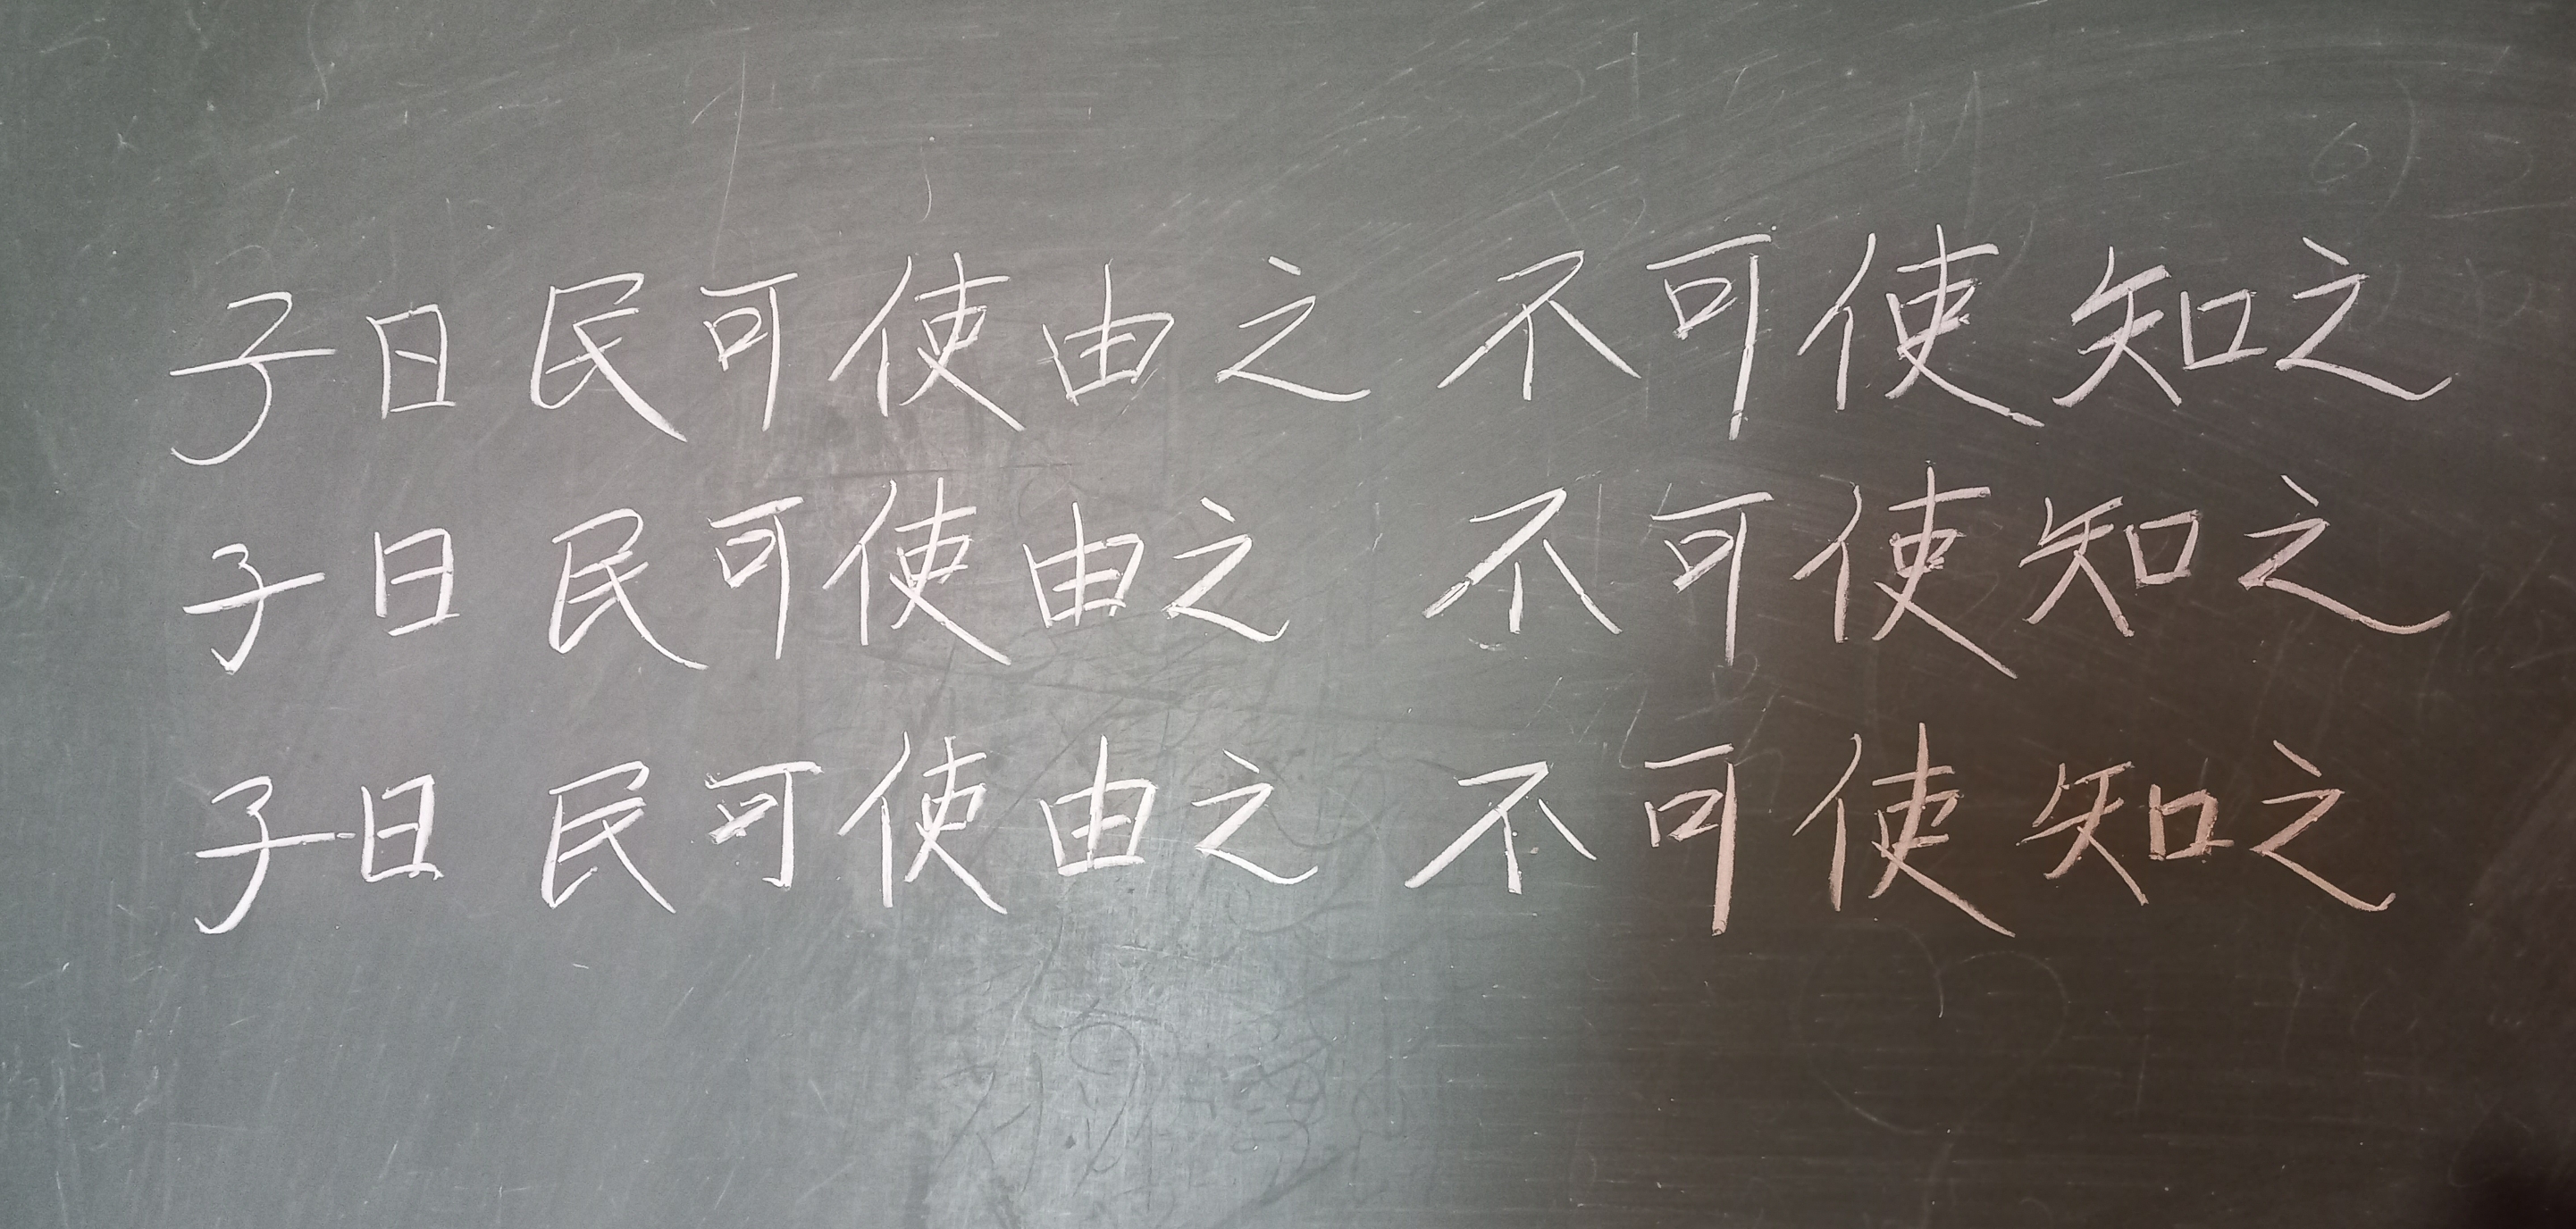 子曰民可使由之 不可使知之
子曰民可使由之 不可使知之
子曰民可使由之 不可使知之